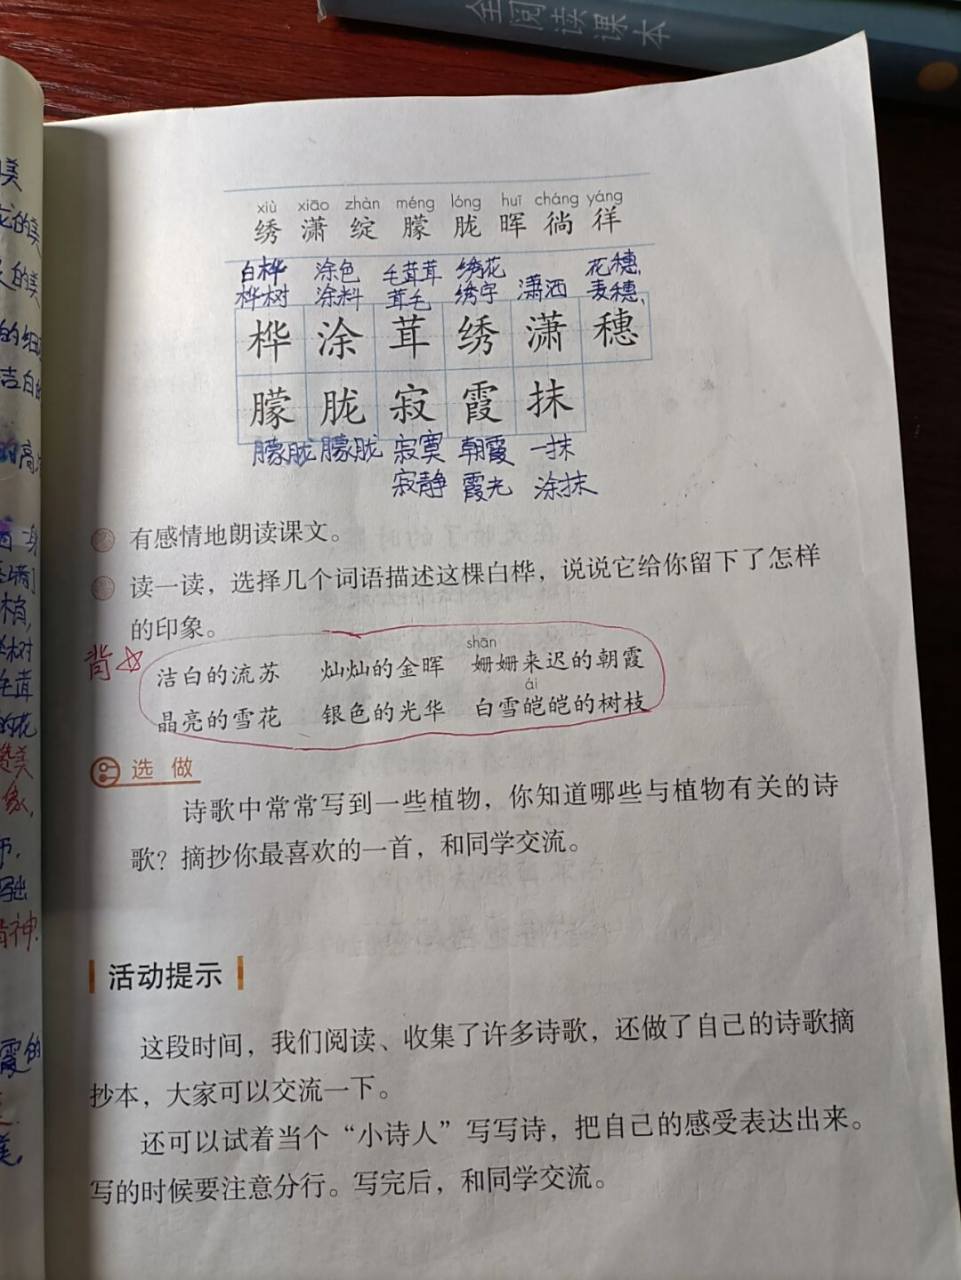 全阅读课本
xiù xiāo zhàn méng lóng huī cháng yáng
绣 潇 绽 朦 胧 晖 徜 徉
白桦 涂色 毛茸茸 绣花 花穗,
桦树 涂料 茸毛 绣字 潇洒 麦穗,
桦 涂 茸 绣 潇 穗
朦 胧 寂 霞 抹
朦胧 朦胧 寂寞 朝霞 一抹
寂静 霞光 涂抹
有感情地朗读课文。
读一读，选择几个词语描述这棵白桦，说说它给你留下了怎样
的印象。
背☆
shān
洁白的流苏 灿灿的金晖 姗姗来迟的朝霞
ái
晶亮的雪花 银色的光华 白雪皑皑的树枝
选做
诗歌中常常写到一些植物，你知道哪些与植物有关的诗
歌？摘抄你最喜欢的一首，和同学交流。
活动提示
这段时间，我们阅读、收集了许多诗歌，还做了自己的诗歌摘
抄本，大家可以交流一下。
还可以试着当个“小诗人”写写诗，把自己的感受表达出来。
写的时候要注意分行。写完后，和同学交流。